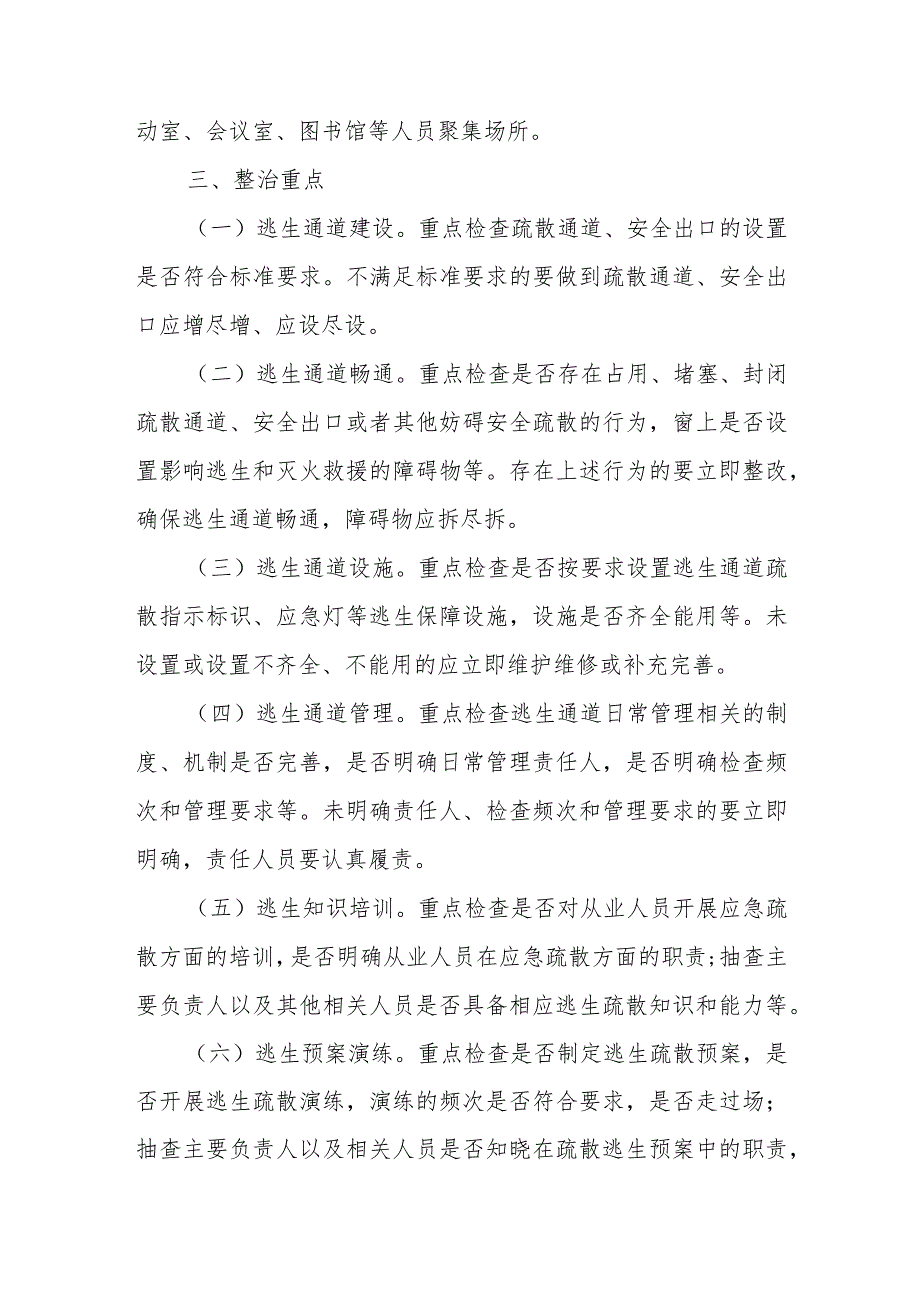 动室、会议室、图书馆等人员聚集场所。
三、整治重点
（一）逃生通道建设。重点检查疏散通道、安全出口的设置
是否符合标准要求。不满足标准要求的要做到疏散通道、安全出
口应增尽增、应设尽设。
（二）逃生通道畅通。重点检查是否存在占用、堵塞、封闭
疏散通道、安全出口或者其他妨碍安全疏散的行为，窗上是否设
置影响逃生和灭火救援的障碍物等。存在上述行为的要立即整改，
确保逃生通道畅通，障碍物应拆尽拆。
（三）逃生通道设施。重点检查是否按要求设置逃生通道疏
散指示标识、应急灯等逃生保障设施，设施是否齐全能用等。未
设置或设置不齐全、不能用的应立即维护维修或补充完善。
（四）逃生通道管理。重点检查逃生通道日常管理相关的制
度、机制是否完善，是否明确日常管理责任人，是否明确检查频
次和管理要求等。未明确责任人、检查频次和管理要求的要立即
明确，责任人员要认真履责。
（五）逃生知识培训。重点检查是否对从业人员开展应急疏
散方面的培训，是否明确从业人员在应急疏散方面的职责;抽查主
要负责人以及其他相关人员是否具备相应逃生疏散知识和能力等。
（六）逃生预案演练。重点检查是否制定逃生疏散预案，是
否开展逃生疏散演练，演练的频次是否符合要求，是否走过场；
抽查主要负责人以及相关人员是否知晓在疏散逃生预案中的职责，